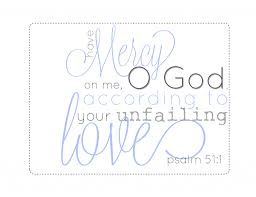 have
Mercy
on me, O God,
according to
your unfailing
love
psalm 51:1